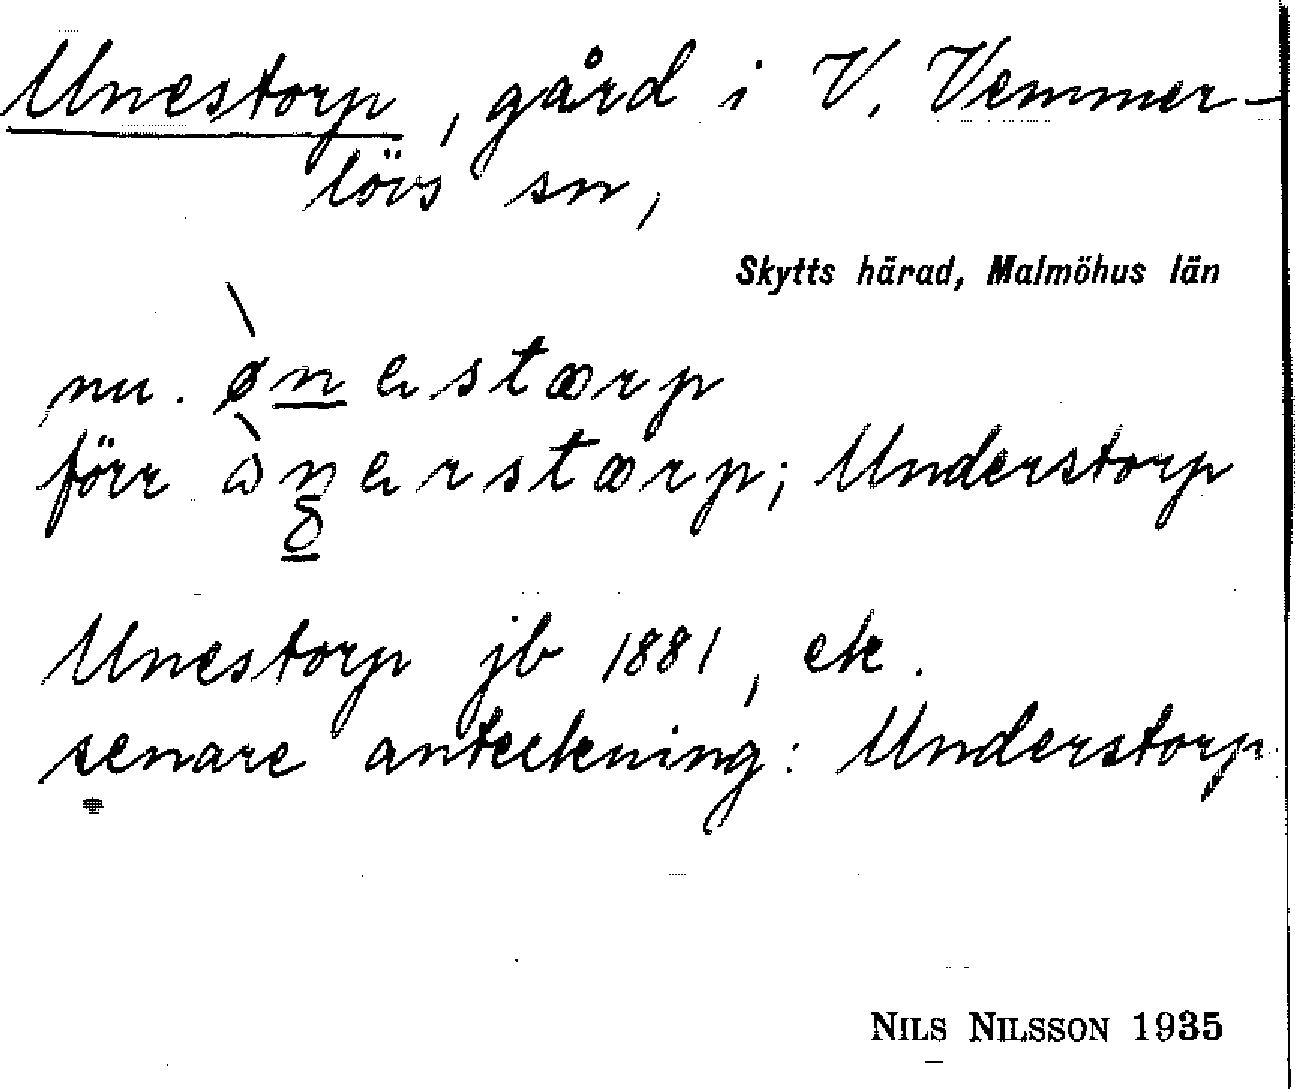 Unestorp, gård i V. Vemmer-
lövs sn,
Skytts härad, Malmöhus län
nu. ø̀nestorp
förr ònerstorp; Understorp
ð
Unestorp jb 1881, ek.
senare anteckning: Understorp
NILS NILSSON 1935